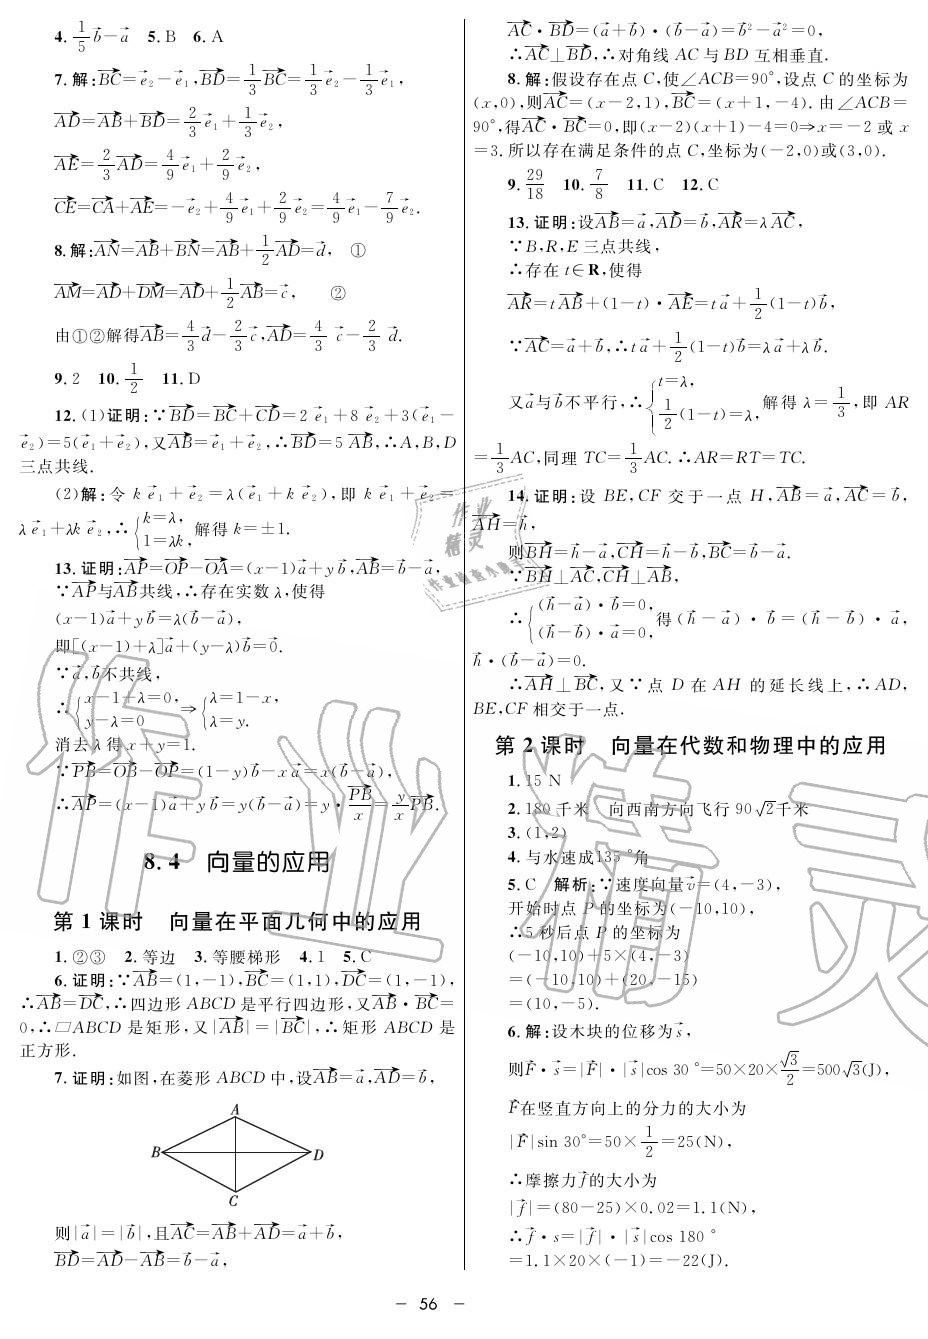 4. 1/5 b⃗－a⃗　5. B　6. A
7. 解:BC⃗＝e⃗₂－e⃗₁,BD⃗＝1/3 BC⃗＝1/3 e⃗₂－1/3 e⃗₁,
AD⃗＝AB⃗＋BD⃗＝2/3 e⃗₁＋1/3 e⃗₂,
AE⃗＝2/3 AD⃗＝4/9 e⃗₁＋2/9 e⃗₂,
CE⃗＝CA⃗＋AE⃗＝－e⃗₂＋4/9 e⃗₁＋2/9 e⃗₂＝4/9 e⃗₁－7/9 e⃗₂.
8. 解:AN⃗＝AB⃗＋BN⃗＝AB⃗＋1/2 AD⃗＝d⃗,　①
AM⃗＝AD⃗＋DM⃗＝AD⃗＋1/2 AB⃗＝c⃗,　②
由①②解得AB⃗＝4/3 d⃗－2/3 c⃗,AD⃗＝4/3 c⃗－2/3 d⃗.
9. 2　10. 1/2　11. D
12. (1)证明:∵BD⃗＝BC⃗＋CD⃗＝2 e⃗₁＋8 e⃗₂＋3(e⃗₁－
e⃗₂)＝5(e⃗₁＋e⃗₂),又AB⃗＝e⃗₁＋e⃗₂,∴BD⃗＝5 AB⃗,∴A,B,D
三点共线.
(2)解:令 k e⃗₁＋e⃗₂＝λ(e⃗₁＋k e⃗₂),即 k e⃗₁＋e⃗₂＝
λe⃗₁＋λk e⃗₂,∴{k＝λ, 1＝λk, 解得 k＝±1.
13. 证明:AP⃗＝OP⃗－OA⃗＝(x－1)a⃗＋y b⃗,AB⃗＝b⃗－a⃗,
∵AP⃗与AB⃗共线,∴存在实数 λ,使得
(x－1)a⃗＋y b⃗＝λ(b⃗－a⃗),
即[(x－1)＋λ]a⃗＋(y－λ)b⃗＝0⃗.
∵a⃗,b⃗不共线,
∴{x－1＋λ＝0, y－λ＝0 ⇒{λ＝1－x, λ＝y.
消去 λ 得 x＋y＝1.
∵PB⃗＝OB⃗－OP⃗＝(1－y)b⃗－x a⃗＝x(b⃗－a⃗),
∴AP⃗＝(x－1)a⃗＋y b⃗＝y(b⃗－a⃗)＝y·PB⃗/x＝y/x PB⃗.
8.4　向量的应用
第 1 课时　向量在平面几何中的应用
1. ②③　2. 等边　3. 等腰梯形　4. 1　5. C
6. 证明:∵AB⃗＝(1,－1),BC⃗＝(1,1),DC⃗＝(1,－1),
∴AB⃗＝DC⃗,∴四边形 ABCD 是平行四边形,又AB⃗·BC⃗＝
0,∴▱ABCD 是矩形,又|AB⃗|＝|BC⃗|,∴矩形 ABCD 是
正方形.
7. 证明:如图,在菱形 ABCD 中,设AB⃗＝a⃗,AD⃗＝b⃗,
A
B
D
C
则|a⃗|＝|b⃗|,且AC⃗＝AB⃗＋AD⃗＝a⃗＋b⃗,
BD⃗＝AD⃗－AB⃗＝b⃗－a⃗,
AC⃗·BD⃗＝(a⃗＋b⃗)·(b⃗－a⃗)＝b⃗²－a⃗²＝0,
∴AC⃗⊥BD⃗,∴对角线 AC 与 BD 互相垂直.
8. 解:假设存在点 C,使∠ACB＝90°,设点 C 的坐标为
(x,0),则AC⃗＝(x－2,1),BC⃗＝(x＋1,－4). 由∠ACB＝
90°,得AC⃗·BC⃗＝0,即(x－2)(x＋1)－4＝0⇒x＝－2 或 x
＝3. 所以存在满足条件的点 C,坐标为(－2,0)或(3,0).
9. 29/18　10. 7/8　11. C　12. C
13. 证明:设AB⃗＝a⃗,AD⃗＝b⃗,AR⃗＝λAC⃗,
∵B,R,E 三点共线,
∴存在 t∈R,使得
AR⃗＝tAB⃗＋(1－t)·AE⃗＝ta⃗＋1/2(1－t)b⃗,
∵AC⃗＝a⃗＋b⃗,∴ta⃗＋1/2(1－t)b⃗＝λa⃗＋λb⃗.
又a⃗与b⃗不平行,∴{t＝λ, 1/2(1－t)＝λ, 解得 λ＝1/3,即 AR
＝1/3 AC,同理 TC＝1/3 AC. ∴AR＝RT＝TC.
14. 证明:设 BE,CF 交于一点 H,AB⃗＝a⃗,AC⃗＝b⃗,
AH⃗＝h⃗,
则BH⃗＝h⃗－a⃗,CH⃗＝h⃗－b⃗,BC⃗＝b⃗－a⃗.
∵BH⃗⊥AC⃗,CH⃗⊥AB⃗,
∴{(h⃗－a⃗)·b⃗＝0, (h⃗－b⃗)·a⃗＝0, 得(h⃗－a⃗)·b⃗＝(h⃗－b⃗)·a⃗,
h⃗·(b⃗－a⃗)＝0.
∴AH⃗⊥BC⃗,又∵点 D 在 AH 的延长线上,∴AD,
BE,CF 相交于一点.
第 2 课时　向量在代数和物理中的应用
1. 15 N
2. 180 千米　向西南方向飞行 90√2千米
3. (1,2)
4. 与水速成135 °角
5. C　解析:∵速度向量v⃗＝(4,－3),
开始时点 P 的坐标为(－10,10),
∴5 秒后点 P 的坐标为
(－10,10)＋5×(4,－3)
＝(－10,10)＋(20,－15)
＝(10,－5).
6. 解:设木块的位移为s⃗,
则F⃗·s⃗＝|F⃗|·|s⃗|cos 30 °＝50×20×√3/2＝500√3(J),
F⃗在竖直方向上的分力的大小为
|F⃗|sin 30°＝50×1/2＝25(N),
∴摩擦力f⃗的大小为
|f⃗|＝(80－25)×0.02＝1.1(N),
∴f⃗·s＝|f⃗|·|s⃗|cos 180 °
＝1.1×20×(－1)＝－22(J).
－ 56 －
作业精灵
作业
精灵